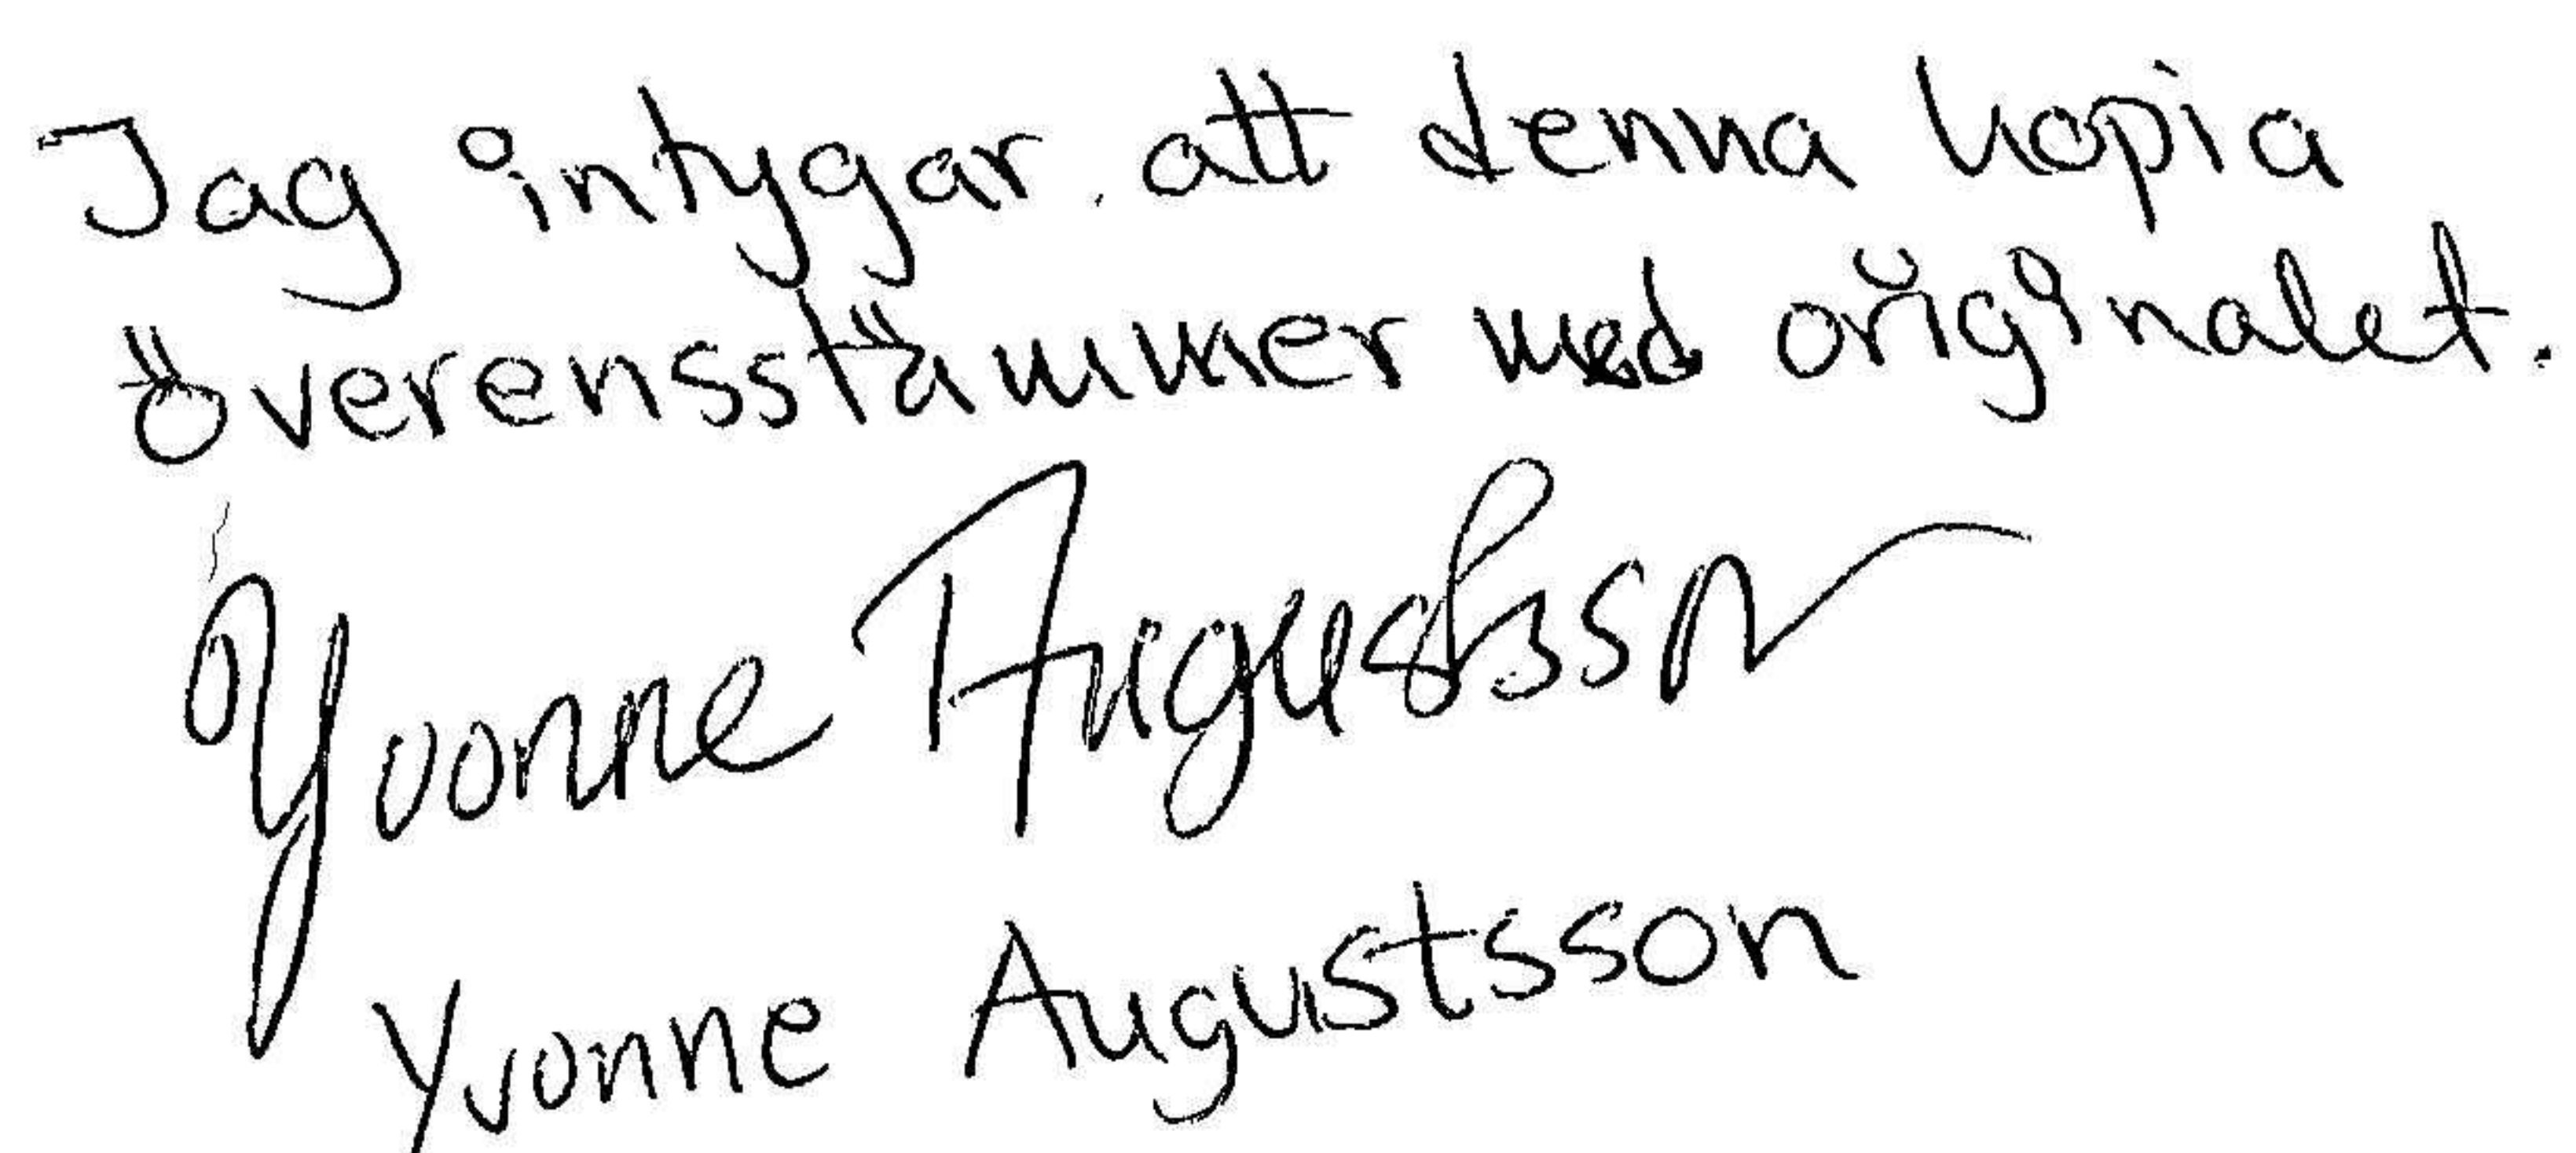 Jag intygar att denna kopia
överensstämmer med originalet.
Yvonne Augustsson
Yvonne Augustsson